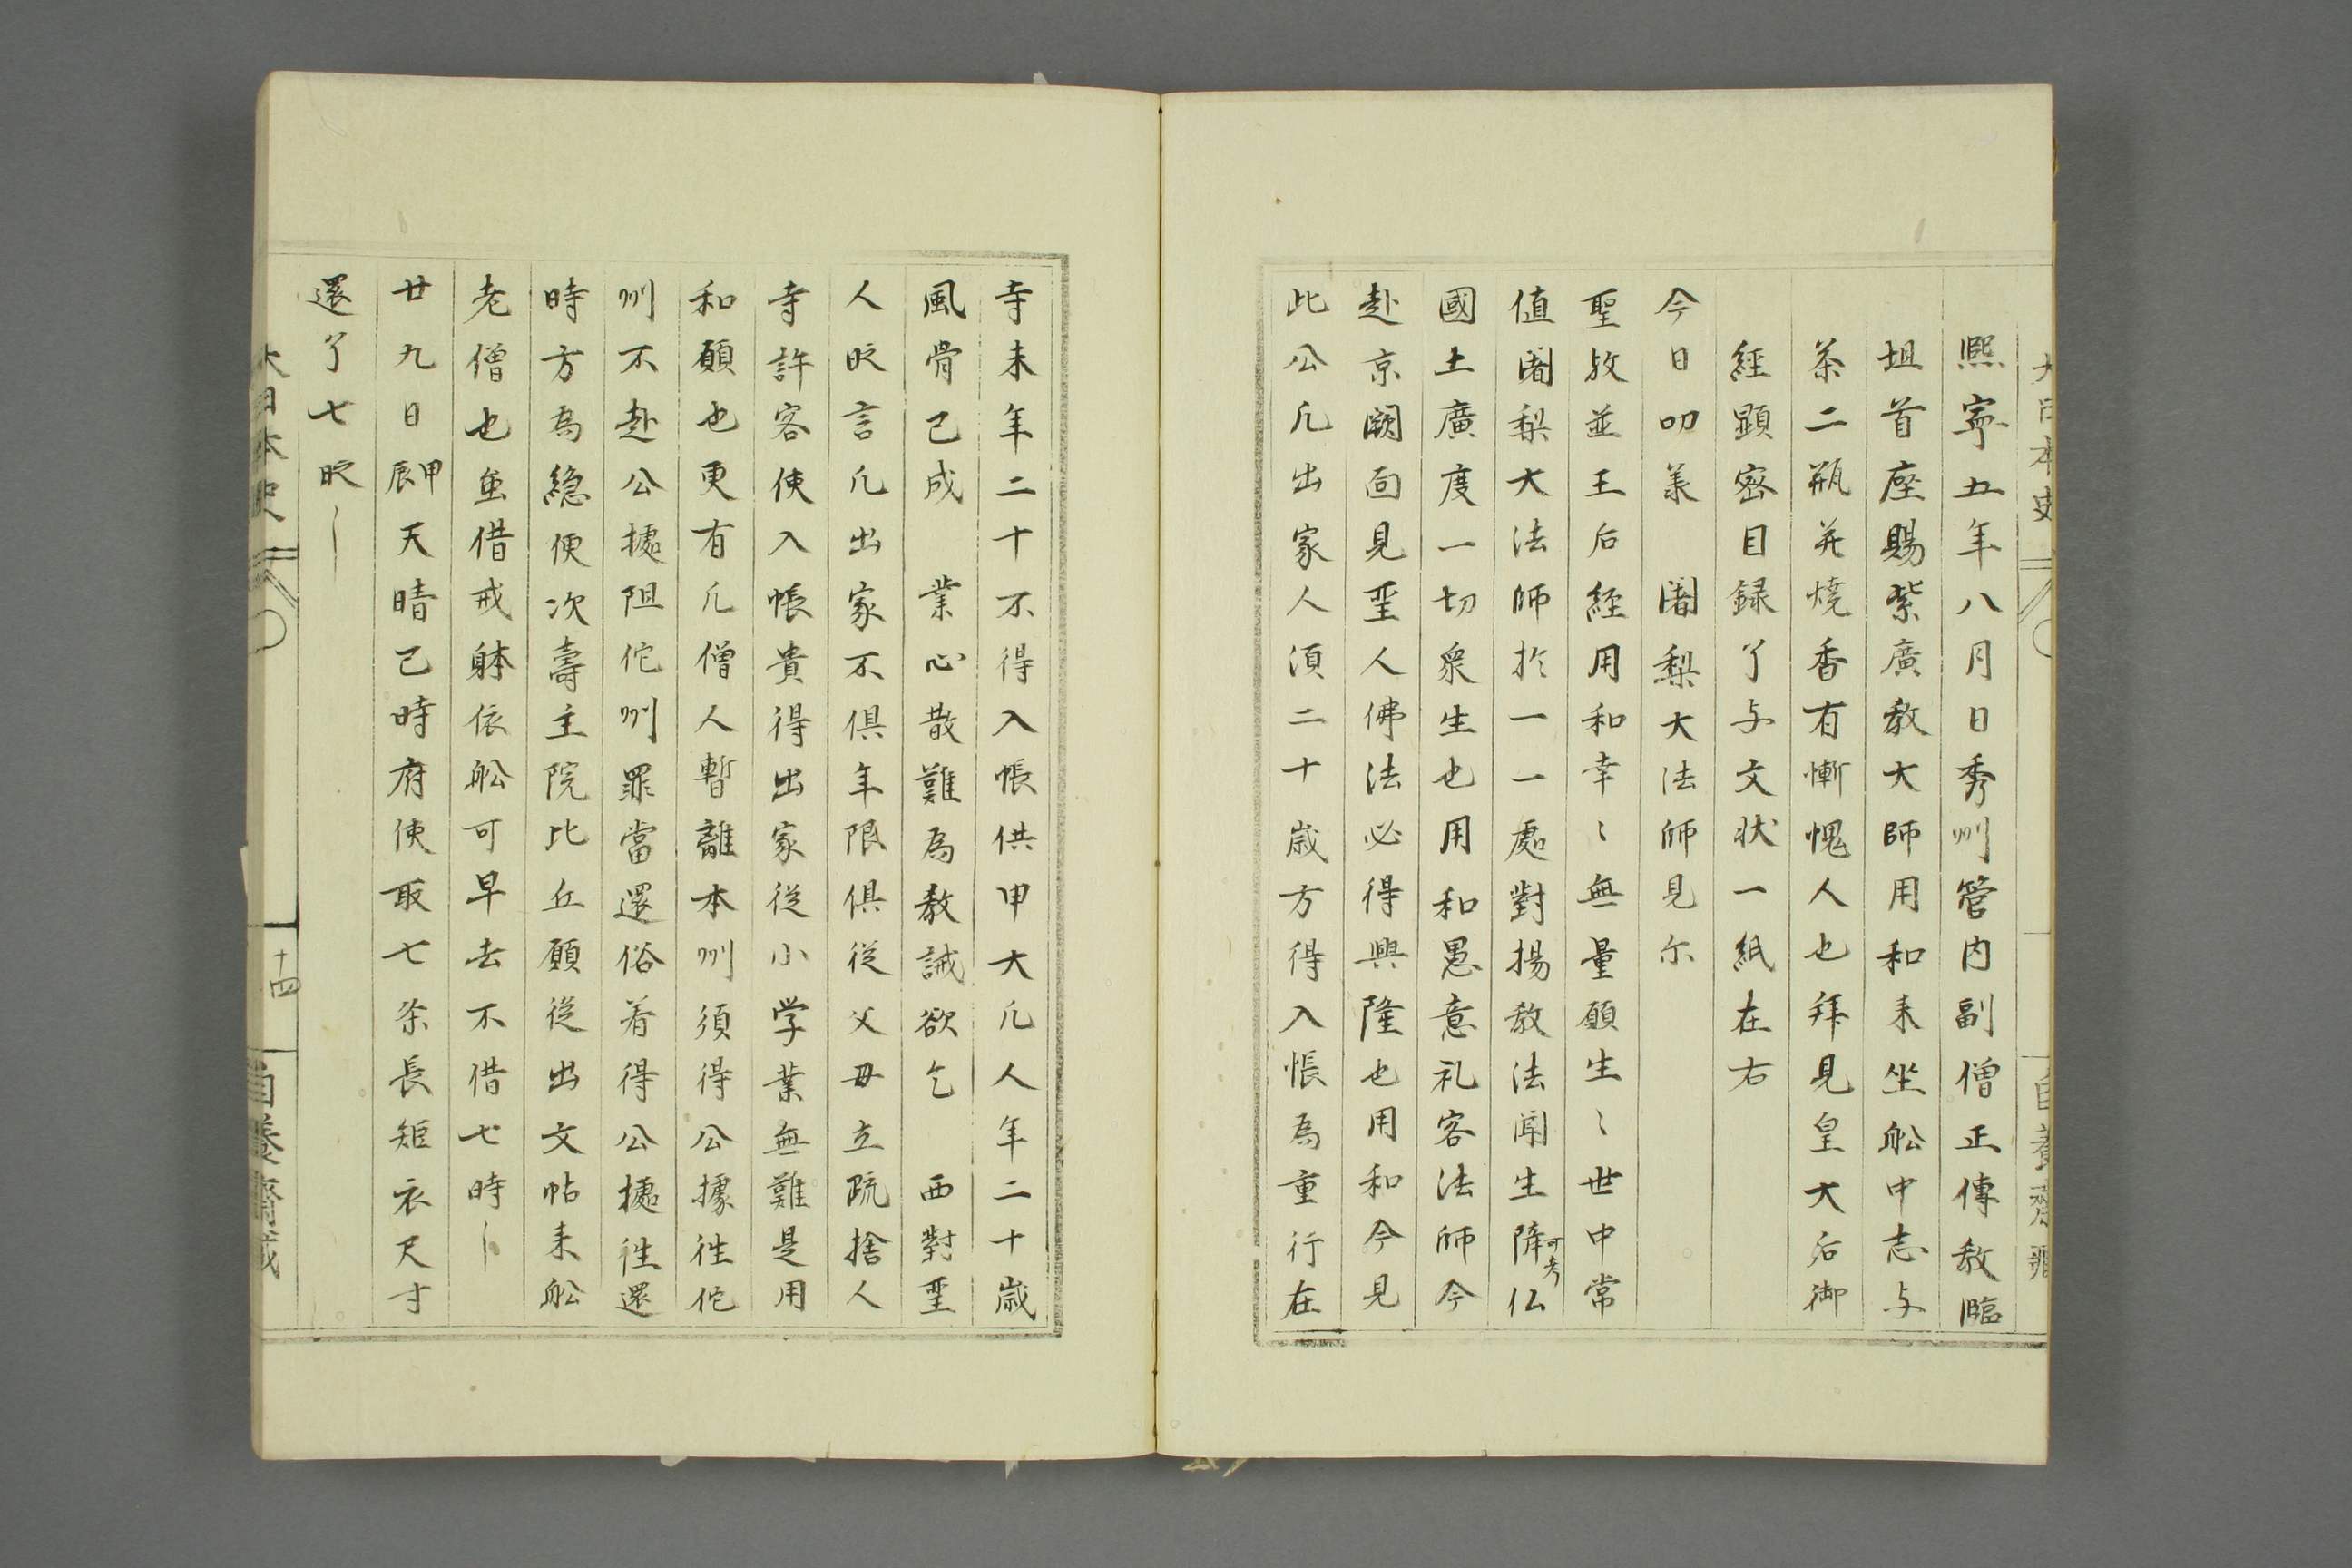 大日本史
自養齋蔵
熙寧五年八月日秀州管内副僧正傳教臨
坦首座賜紫廣教大師用和来坐舩中志与
茶二瓶并燒香有慚愧人也拜見皇大后御
經顕密目録了与文状一紙在右
今日叩羕　闍梨大法師見尔
聖敀並王后經用和幸〻無量願生〻世中常
值闍梨大法師於一一處對揚教法聞生降仏
可考
國土廣度一切衆生也用和愚意礼客法師今
赴京闕面見聖人佛法必得興隆也用和今見
此公凡出家人湏二十歳方得入帳為重行在
寺未年二十不得入帳供申大凡人年二十歳
風骨已成　業心散難為教誡欲乞　西對聖
人旼言凡出家不俱年限俱従父毋立疏捨人
寺許客使入帳貴得出家従小学業無難是用
和願也更有凡僧人暫離本州須得公據徃佗
州不赴公㨿阻佗州罪當還俗着得公㨿徃還
時方為穏便次壽主院比丘願従出文帖来舩
老僧也虽借戒躰依舩可早去不借七時〡
廿九日甲辰天晴已時府使取七条長矩衣尺寸
還了七旼〡
大日本史
十四
自養齋蔵